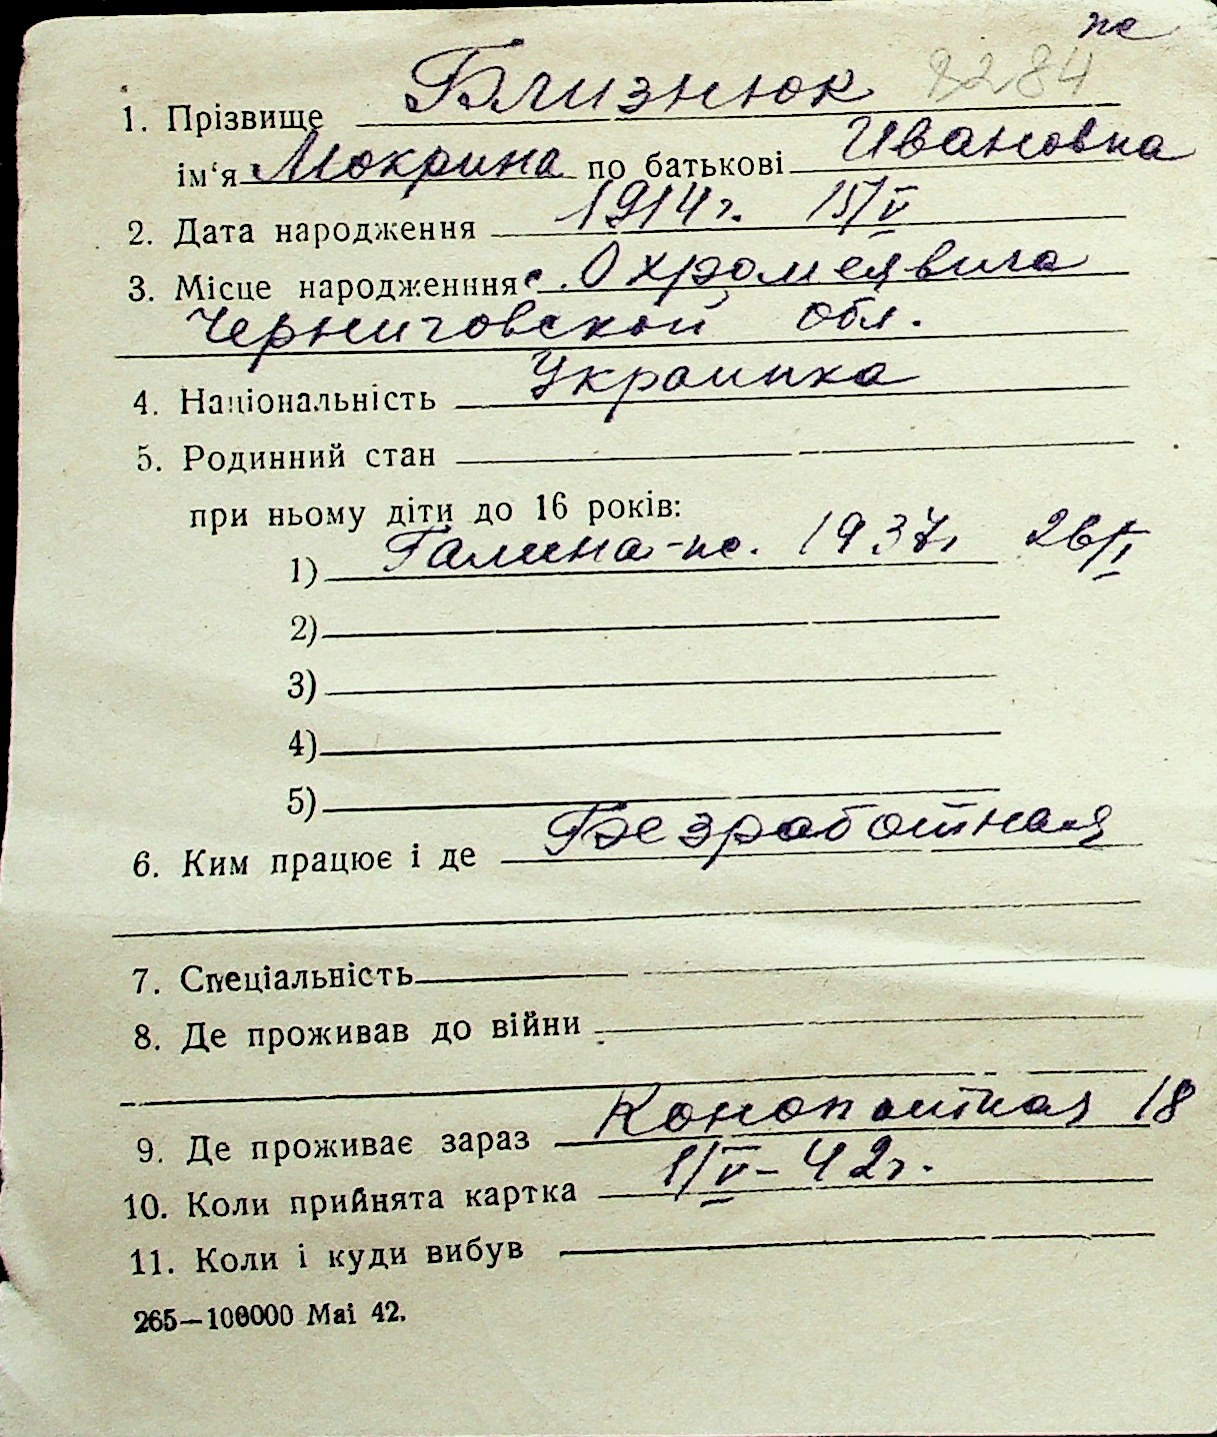 пе
8284
1. Прізвище Близнюк
ім‘я Мокрина по батькові Ивановна
2. Дата народження 1914 г. 15/V
3. Місце народженння с. Охромеявича
Черниговской обл.
4. Національність Украинка
5. Родинний стан
при ньому діти до 16 років:
1) Галина - пе. 1937г 26/I
2)
3)
4)
5)
6. Ким працює і де Безработная
7. Спеціальність
8. Де проживав до війни
9. Де проживає зараз 18
10. Коли прийнята картка 1/V - 42 г.
11. Коли і куди вибув
265—100000 Mai 42.